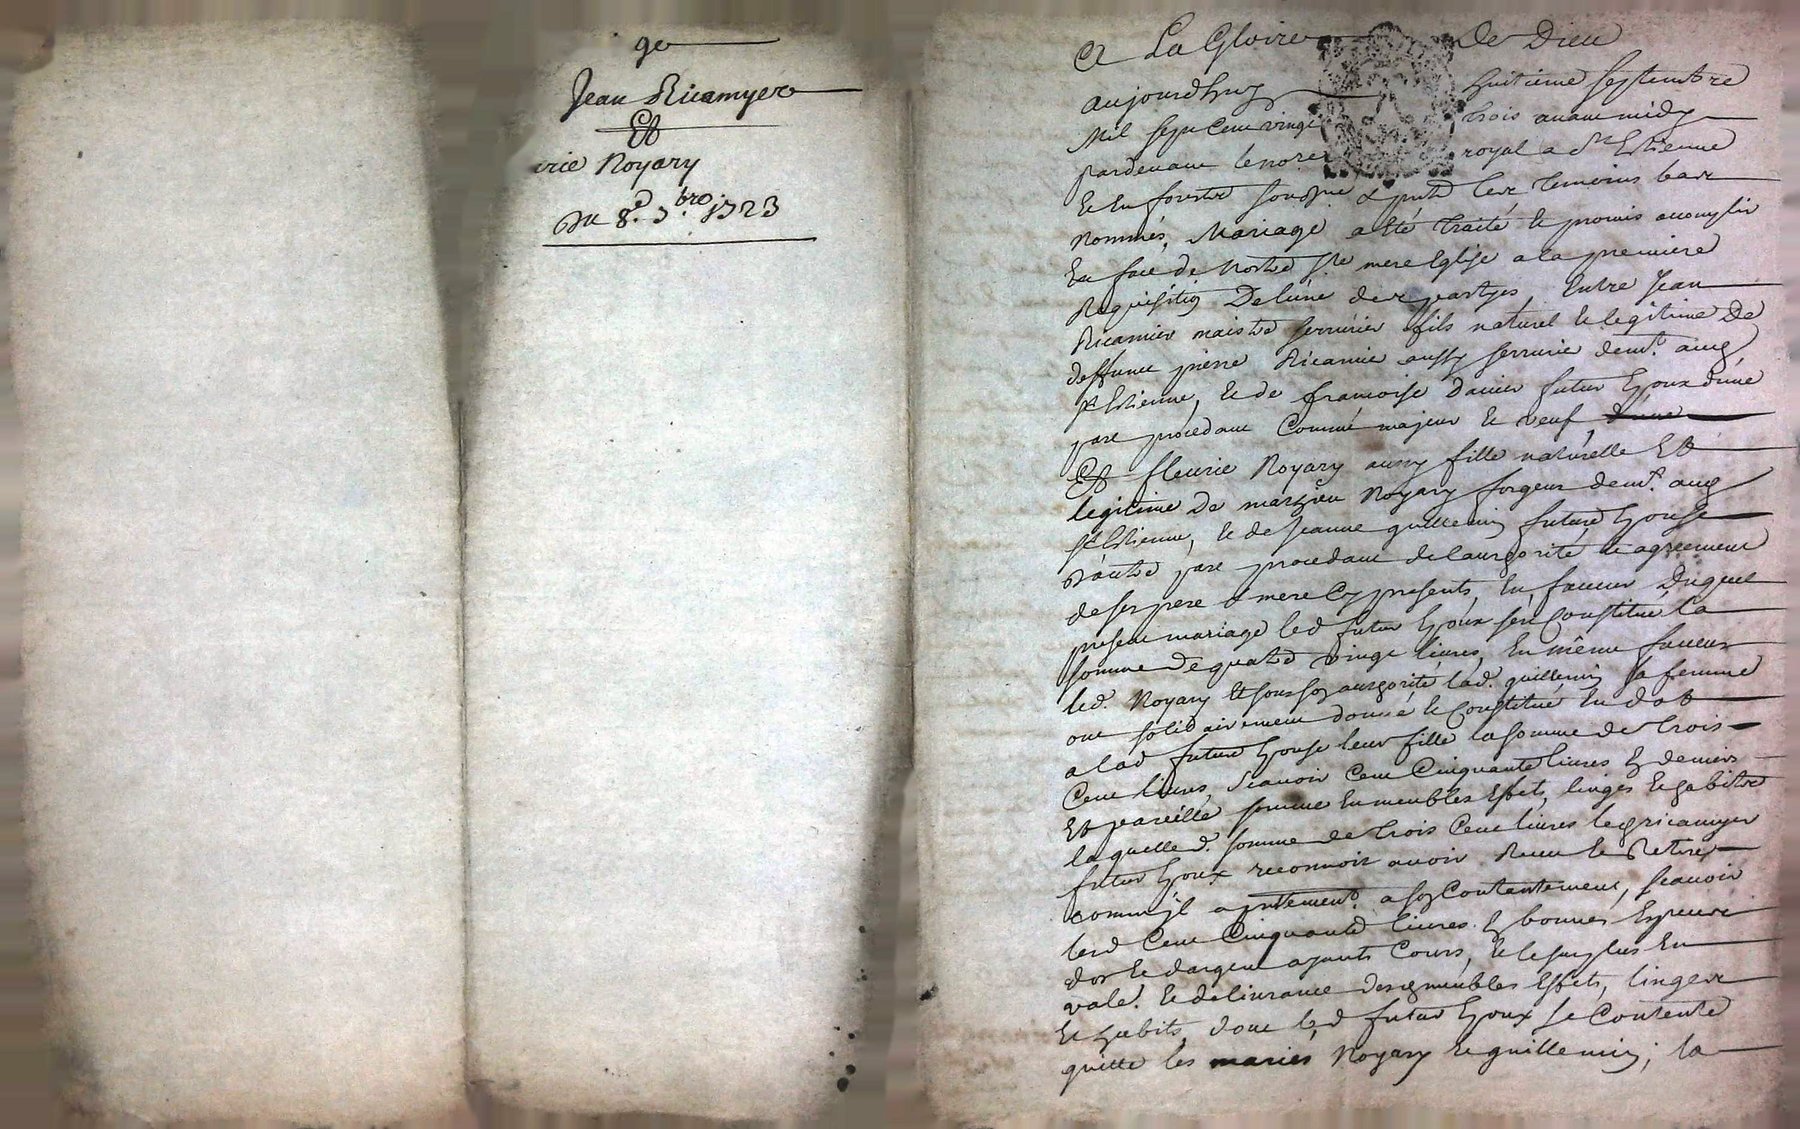 ge
Jean Ricamyer
Et
urie Noyary
Du 8.e 7.bre 1723
A La Gloire De Dieu
aujourdhuy huitieme septembre
Mil sept cent vingt trois avant midy
pardevant le no.re royal a St Estienne
En forestz soussigné & pntz les temoins bas
nommés, Mariage a eté traité et promis accomplir
En face de nostre Ste mere Eglise a la premiere
Requisition De lune des partyes Entre Jean
Ricamier maistre serrurier fils naturel et legitime De
deffunt pierre Ricamie aussy serrurie demt. aud.
St Estienne, et de francoise Danier futur Epoux dune
part procedant Comme majeur et veuf
Et fleurie Noyary aussy fille naturelle Et
legitime De Noyary forgeur demt. aud
St Estienne, et de Jeanne guillemin future Epouse
D'autre part procedant de lauthorité et agreement
de ses pere & mere Cy presents, En faveur Duquel
present mariage led futur Epoux sest Constitué La
somme De quatre vingt livres, En même faveur
led. Noyary Et sous son authorité lad. guillemin sa femme
ont solidairement donné et Constitué En dot
a lad future Epouse leur fille la somme de trois
Cent livres, sçavoir Cent Cinquante livres En deniers
Et pareille somme En meubles Effets, linges Et habits
laquelle d. somme de trois Cent livres led ricamyer
futur Epoux reconnoit avoir Receu et Retiré
comm'jl a pntement a son Contantement, sçavoir
lesd Cent Cinquante livres En bonnes Especes
dor Et dargent ayants Cours, Et le surplus En
vale. Et delivrance desd meubles Effets, linges
Et habits, dont led futur Epoux se Contente
quitte les mariés Noyary Et guillemin; la